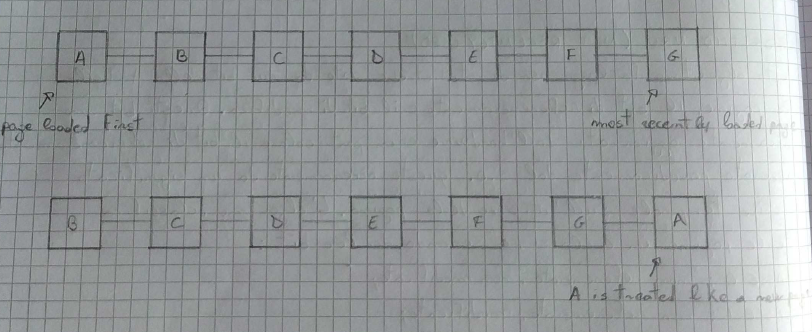 A B C D E F G
page loaded First
most recently loaded page
B C D E F G A
A is treated like a new